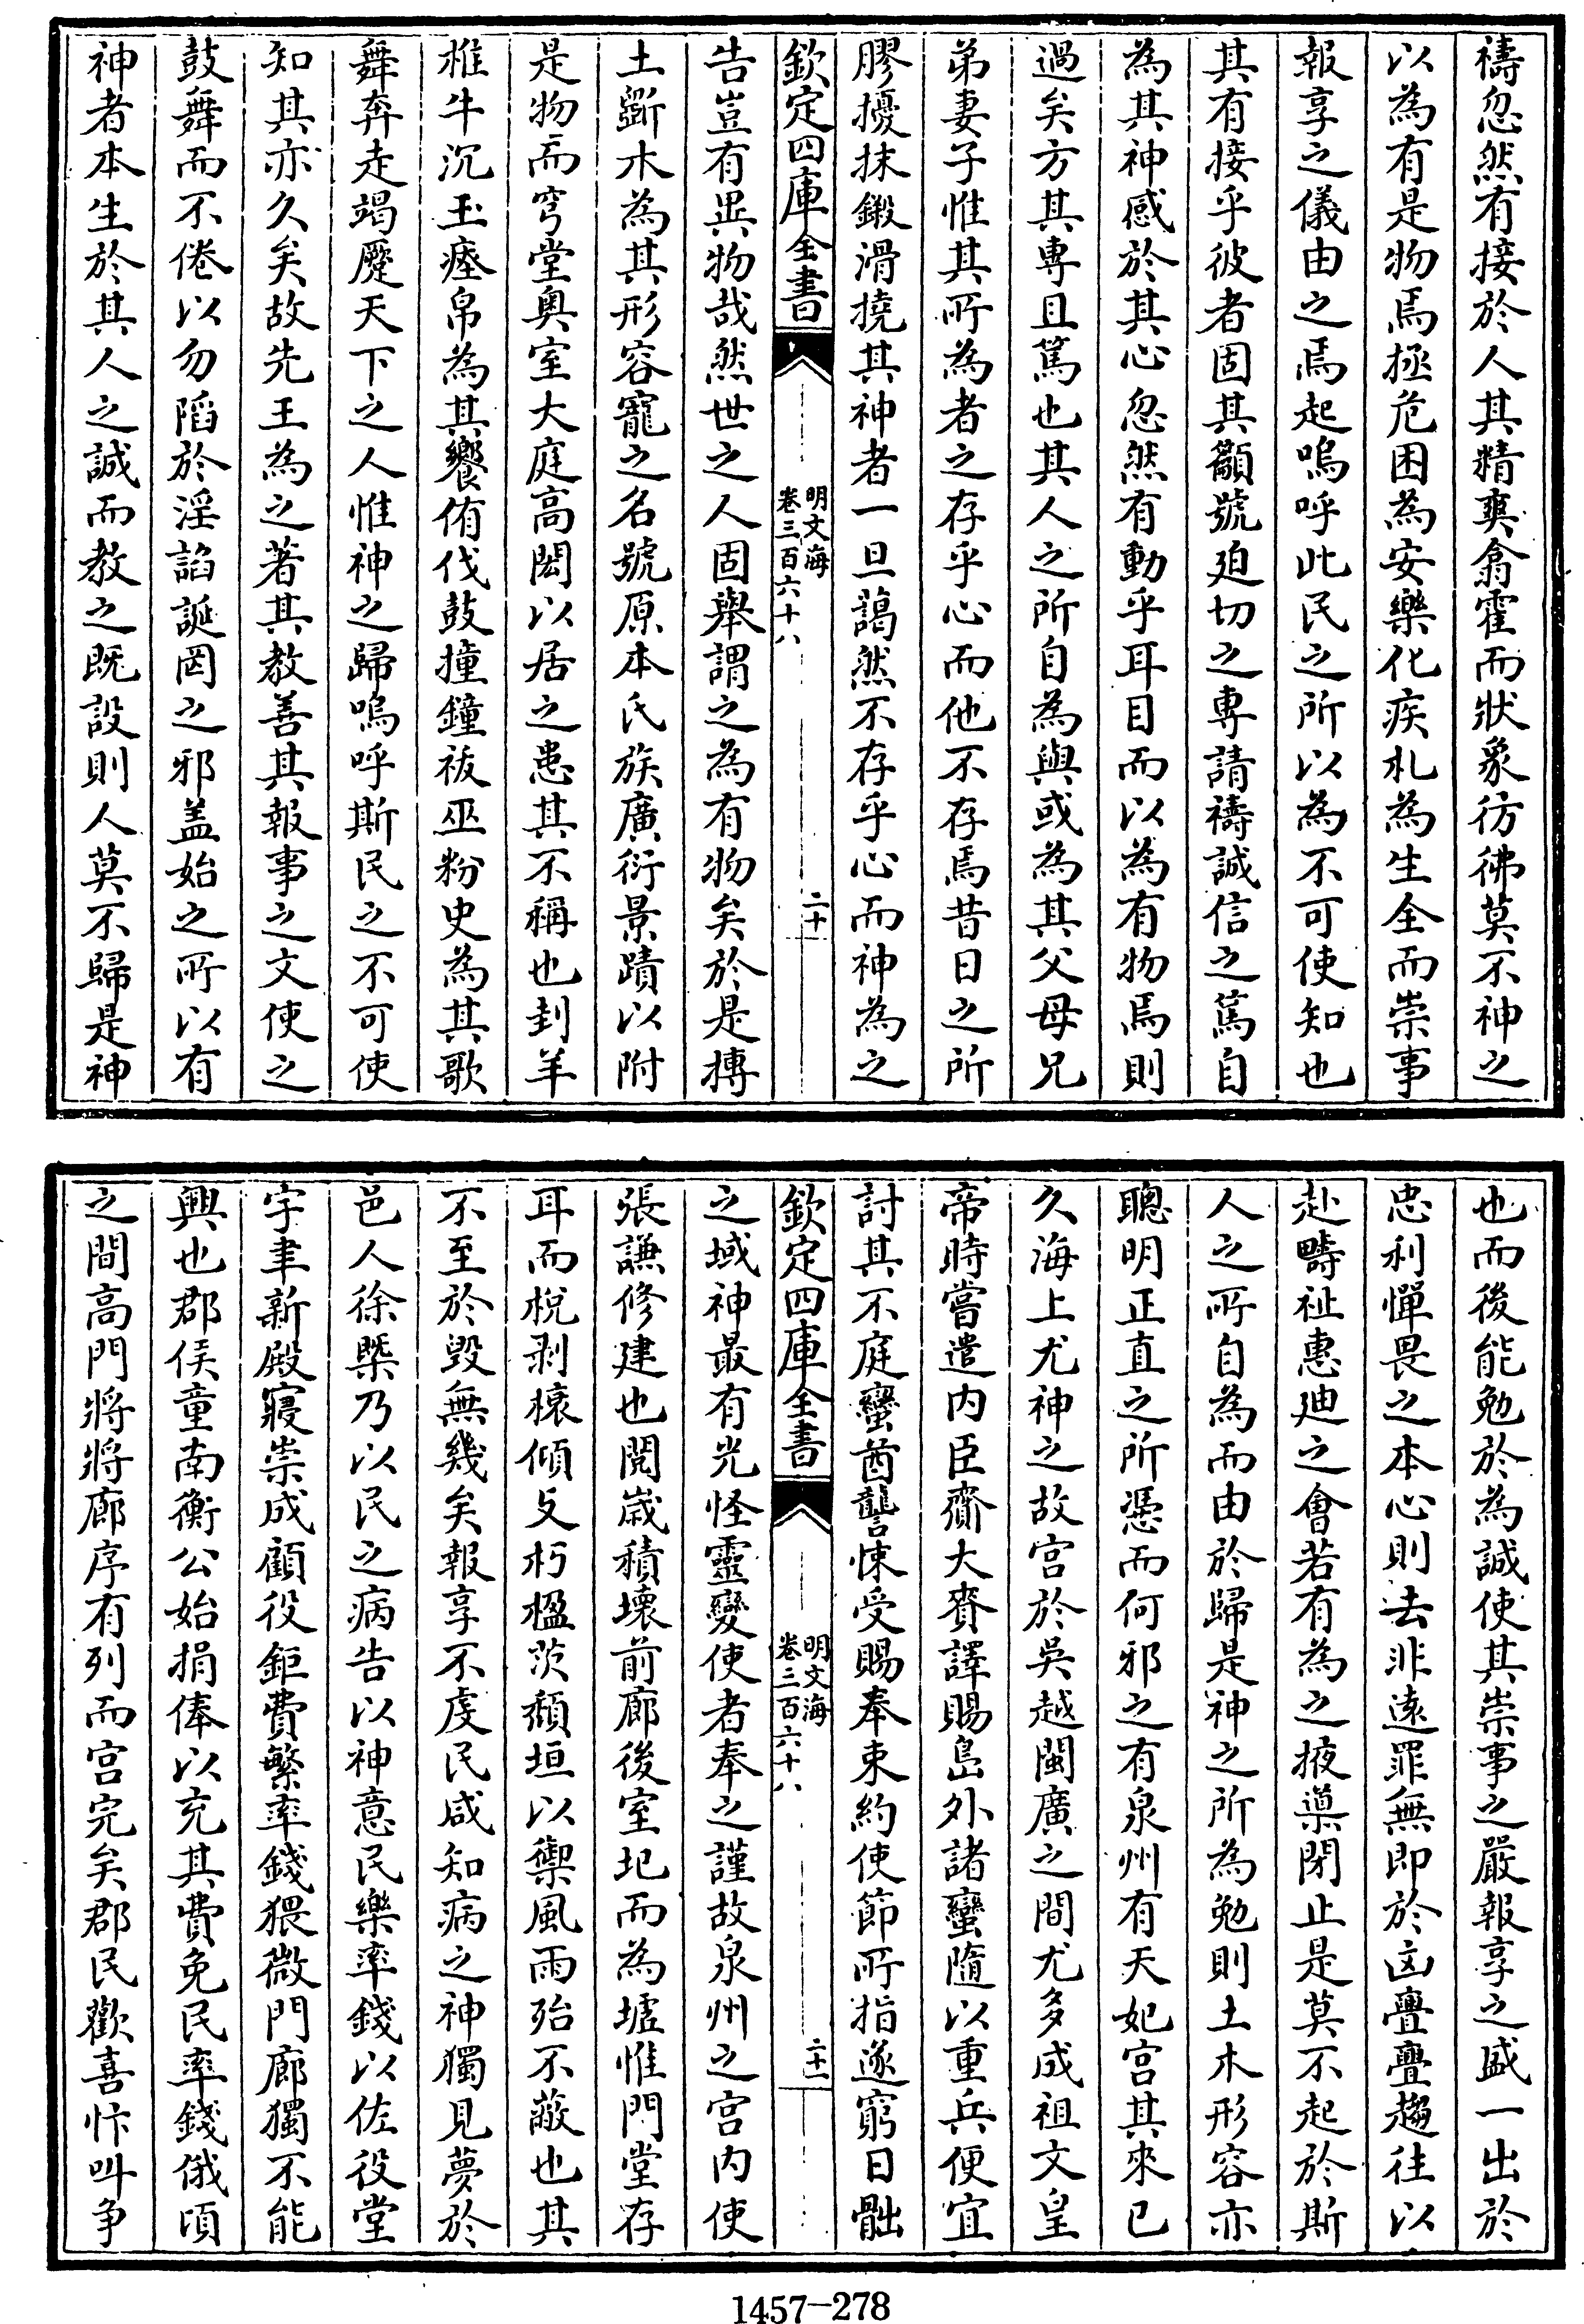 禱忽然有接於人其精爽翕霍而狀象彷彿莫不神之
以為有是物焉拯危困為安樂化疾札為生全而崇事
報享之儀由之焉起嗚呼此民之所以為不可使知也
其有接乎彼者固其籲號廹切之專請禱誠信之篤自
為其神感於其心忽然有動乎耳目而以為有物焉則
過矣方其專且篤也其人之所自為與或為其父母兄
弟妻子惟其所為者之存乎心而他不存焉昔日之所
膠擾抹鍛滑撓其神者一旦藹然不存乎心而神為之
欽定四庫全書
明文海
卷三百六十八
二十
告豈有異物哉然世之人固舉謂之為有物矣於是摶
土斵木為其形容寵之名號原本氏族廣衍景蹟以附
是物而穹堂奥室大庭高閎以居之患其不稱也刲羊
椎牛沉玉瘞帛為其饗侑伐鼓撞鐘祓巫粉史為其歌
舞奔走竭蹷天下之人惟神之歸嗚呼斯民之不可使
知其亦久矣故先王為之著其教善其報事之文使之
鼓舞而不倦以勿陷於淫諂誕罔之邪盖始之所以有
神者本生於其人之誠而教之既設則人莫不歸是神
也而後能勉於為誠使其崇事之嚴報享之盛一出於
忠利憚畏之本心則去非遠罪無即於凶亹亹趨往以
赴疇祉惠廸之會若有為之掖導閉止是莫不起於斯
人之所自為而由於歸是神之所為勉則土木形容亦
聰明正直之所憑而何邪之有泉州有天妃宫其來已
久海上尤神之故宫於吳越閩廣之間尤多成祖文皇
帝時嘗遣内臣齎大賚譯賜島外諸蠻隨以重兵便宜
討其不庭蠻酋讋悚受賜奉束約使節所指遂窮日𦙄
欽定四庫全書
明文海
卷三百六十八
二十一
之域神最有光怪靈變使者奉之謹故泉州之宫内使
張謙修建也閱歲積壊前廊後室圮而為墟惟門堂存
耳而梲剥榱傾攴朽楹茨頽垣以禦風雨殆不蔽也其
不至於毁無幾矣報享不虔民咸知病之神獨見夢於
邑人徐㮣乃以民之病告以神意民樂率錢以佐役堂
宇聿新殿寢崇成顧役鉅費繁率錢猥微門廊獨不能
興也郡侯童南衡公始捐俸以充其費免民率錢俄頃
之間高門將將廊序有列而宫完矣郡民歡喜忭呌争
1457—278